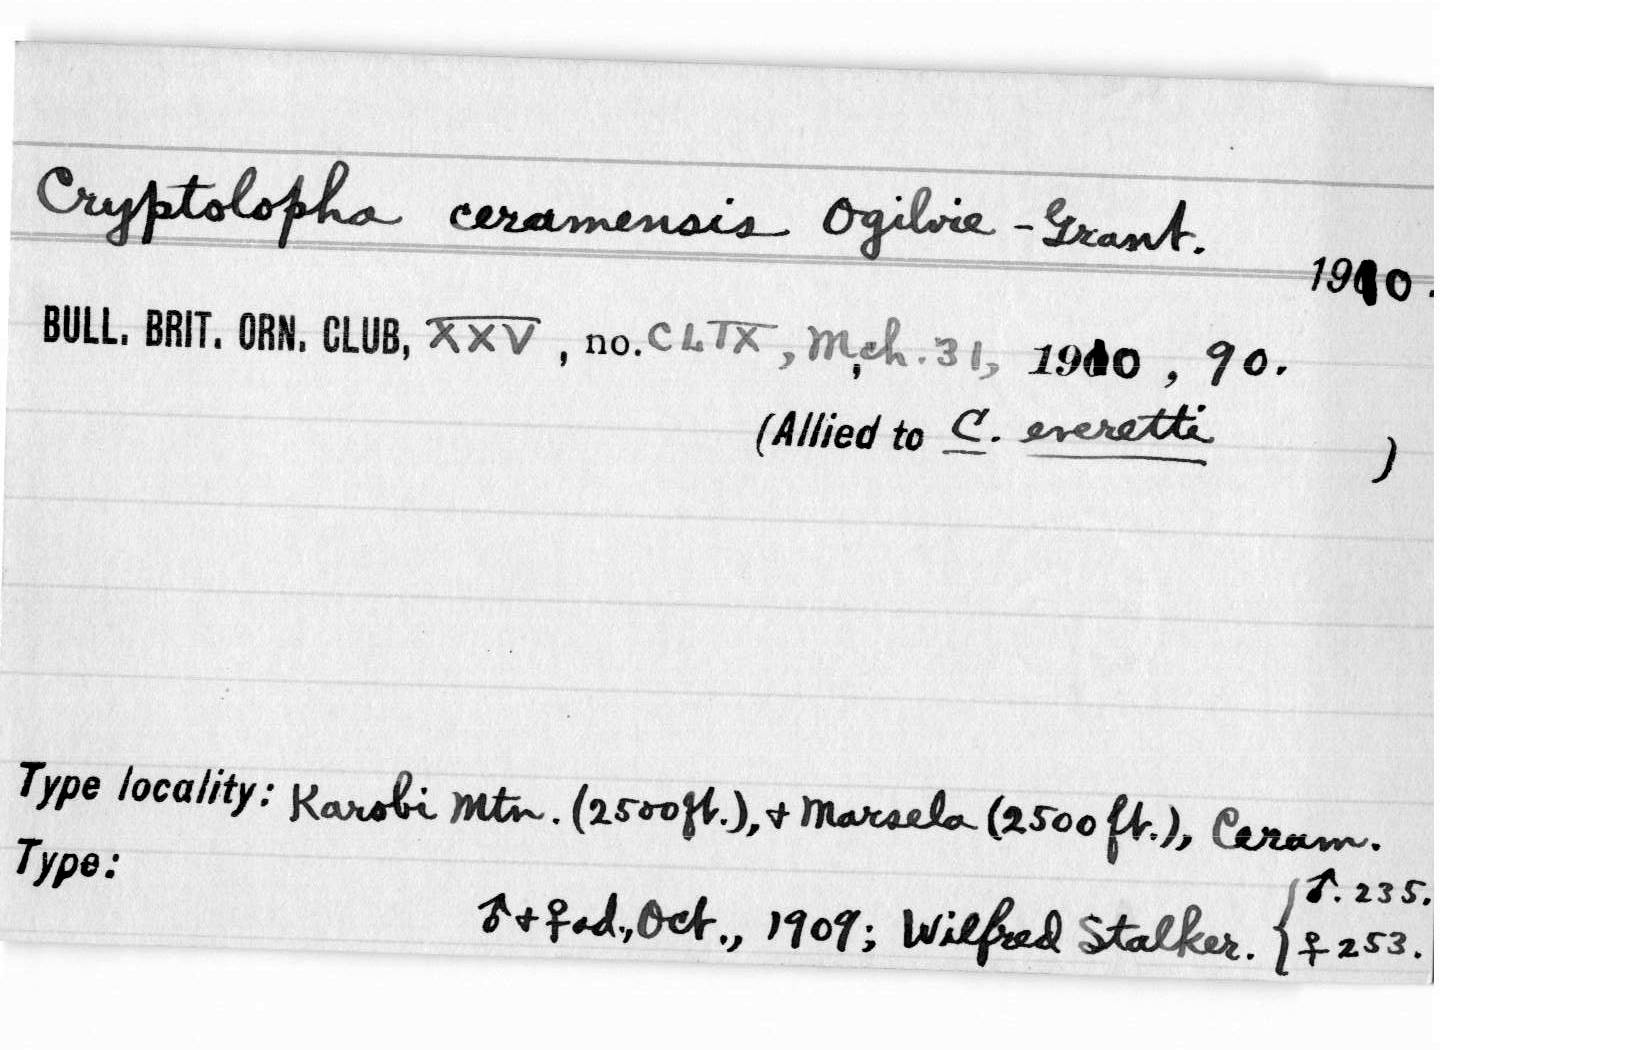 Cryptolopha ceramensis Ogilvie-Grant.
1910.
BULL. BRIT. ORN. CLUB, XXV, no. CLIX, Mch. 31, 1910, 90.
(Allied to C. everetti )
Type locality: Karobi Mtn. (2500ft.), + Marsela (2500 ft.), Ceram.
Type:
♂ + ♀ ad., Oct., 1909; Wilfred Stalker. { ♂. 235.
♀ 253.